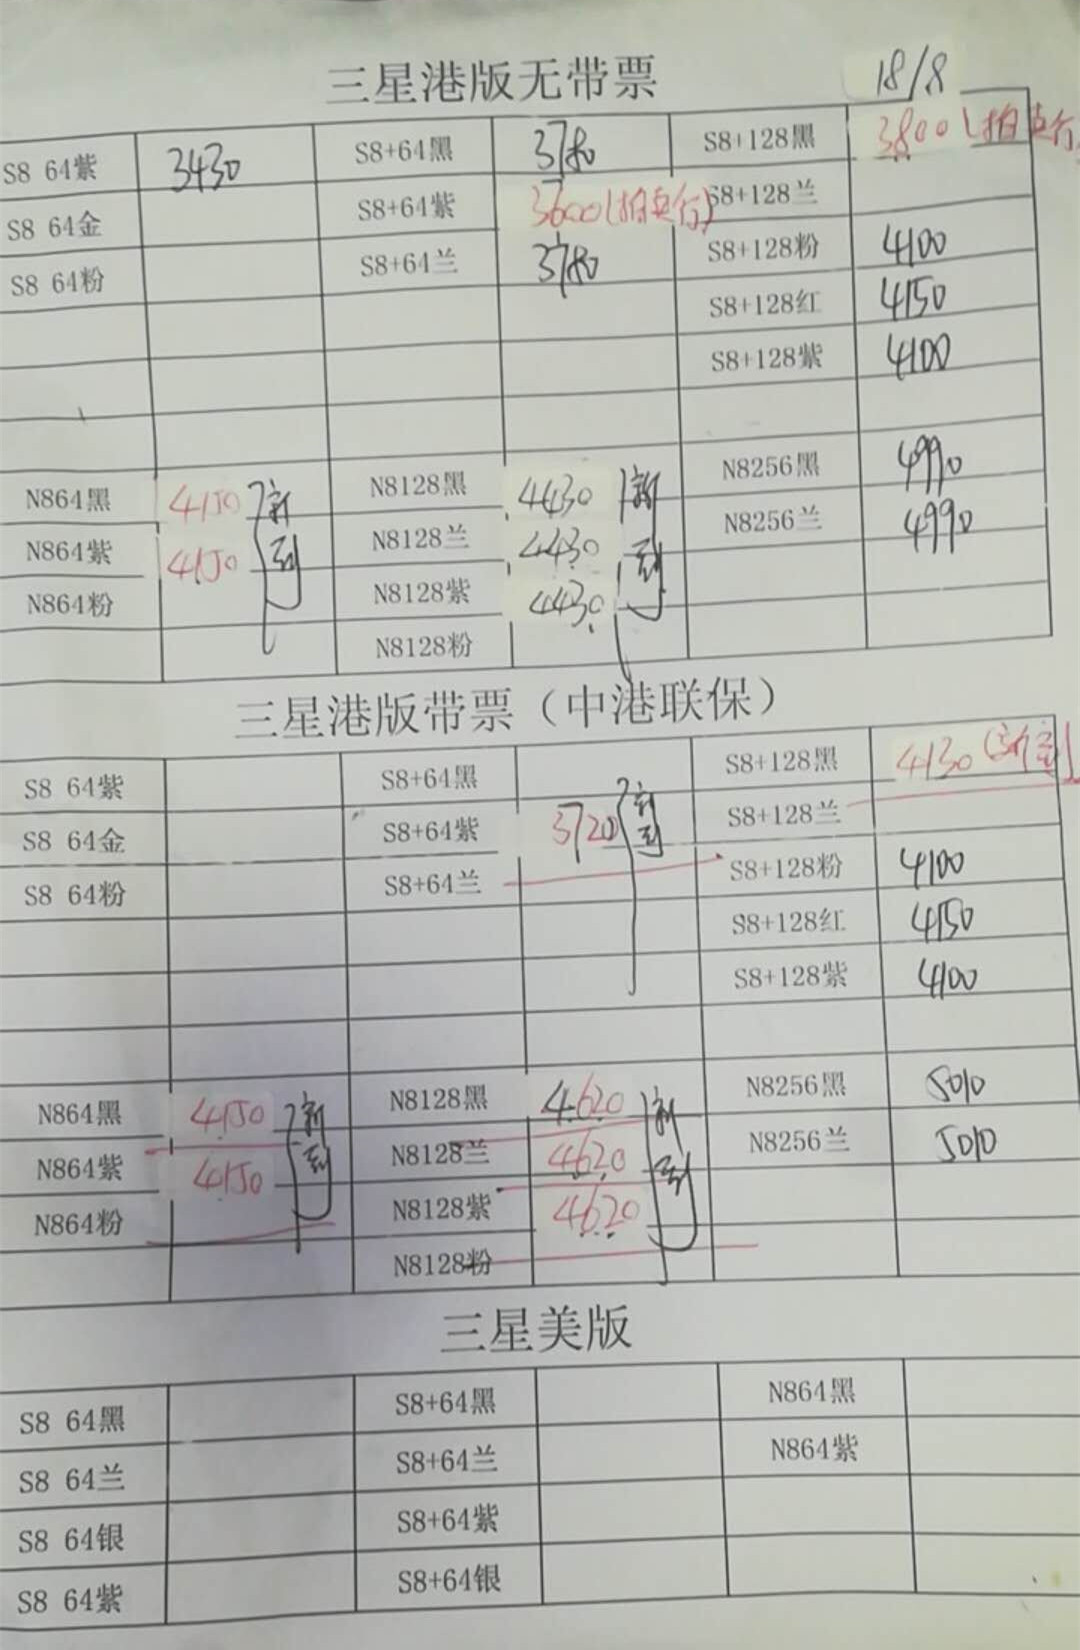 三星港版无带票 18/8
S8 64紫 3430 S8+64黑 3780 S8+128黑 3800(拍卖行)
S8 64金 S8+64紫 3600(拍卖行) S8+128兰
S8 64粉 S8+64兰 3780 S8+128粉 4100
S8+128红 4150
S8+128紫 4100
N864黑 4150 新到 N8128黑 4430 新到 N8256黑 4990
N864紫 4150 N8128兰 4430 N8256兰 4990
N864粉 N8128紫 4430
N8128粉
三星港版带票（中港联保）
S8 64紫 S8+64黑 S8+128黑 4130(新到)
S8 64金 S8+64紫 3720 新到 S8+128兰
S8 64粉 S8+64兰 S8+128粉 4100
S8+128红 4150
S8+128紫 4100
N864黑 4150 新到 N8128黑 4620 新到 N8256黑 5010
N864紫 4150 N8128兰 4620 N8256兰 5010
N864粉 N8128紫 4620
N8128粉
三星美版
S8 64黑 S8+64黑 N864黑
S8 64兰 S8+64兰 N864紫
S8 64银 S8+64紫
S8 64紫 S8+64银